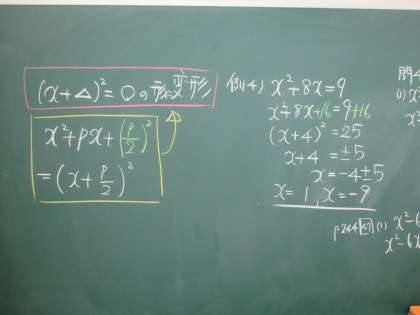 (x+△)²=○の形に変形
x²+px+(p/2)²
=(x+p/2)²
例4) x²+8x=9
x²+8x+16=9+16
(x+4)²=25
x+4=±5
x=-4±5
x=1, x=-9
問4
(1) x²
x²
(1) x²-6
x²-6x